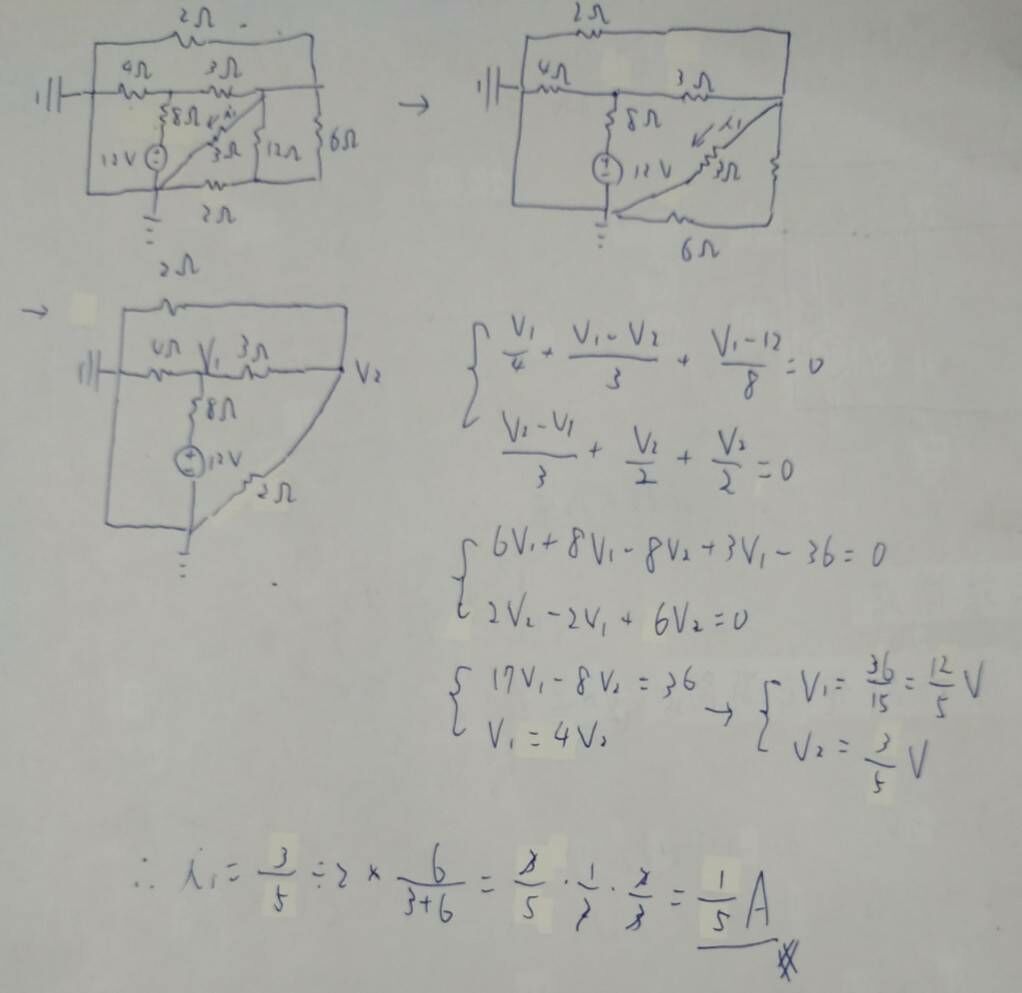 2Ω
4Ω 3Ω
8Ω i₁
12V 3Ω 12Ω 6Ω
2Ω
→
2Ω
4Ω 3Ω
8Ω i₁
12V 3Ω
6Ω
→
2Ω
4Ω V₁ 3Ω V₂
8Ω
12V
2Ω
{ V₁/4 + (V₁-V₂)/3 + (V₁-12)/8 = 0
(V₂-V₁)/3 + V₂/2 + V₂/2 = 0
{ 6V₁ + 8V₁ - 8V₂ + 3V₁ - 36 = 0
2V₂ - 2V₁ + 6V₂ = 0
{ 17V₁ - 8V₂ = 36
V₁ = 4V₂
→ { V₁ = 36/15 = 12/5 V
V₂ = 3/5 V
∴ i₁ = 3/5 ÷ 2 × 6/(3+6) = 3/5 · 1/2 · 2/3 = 1/5 A